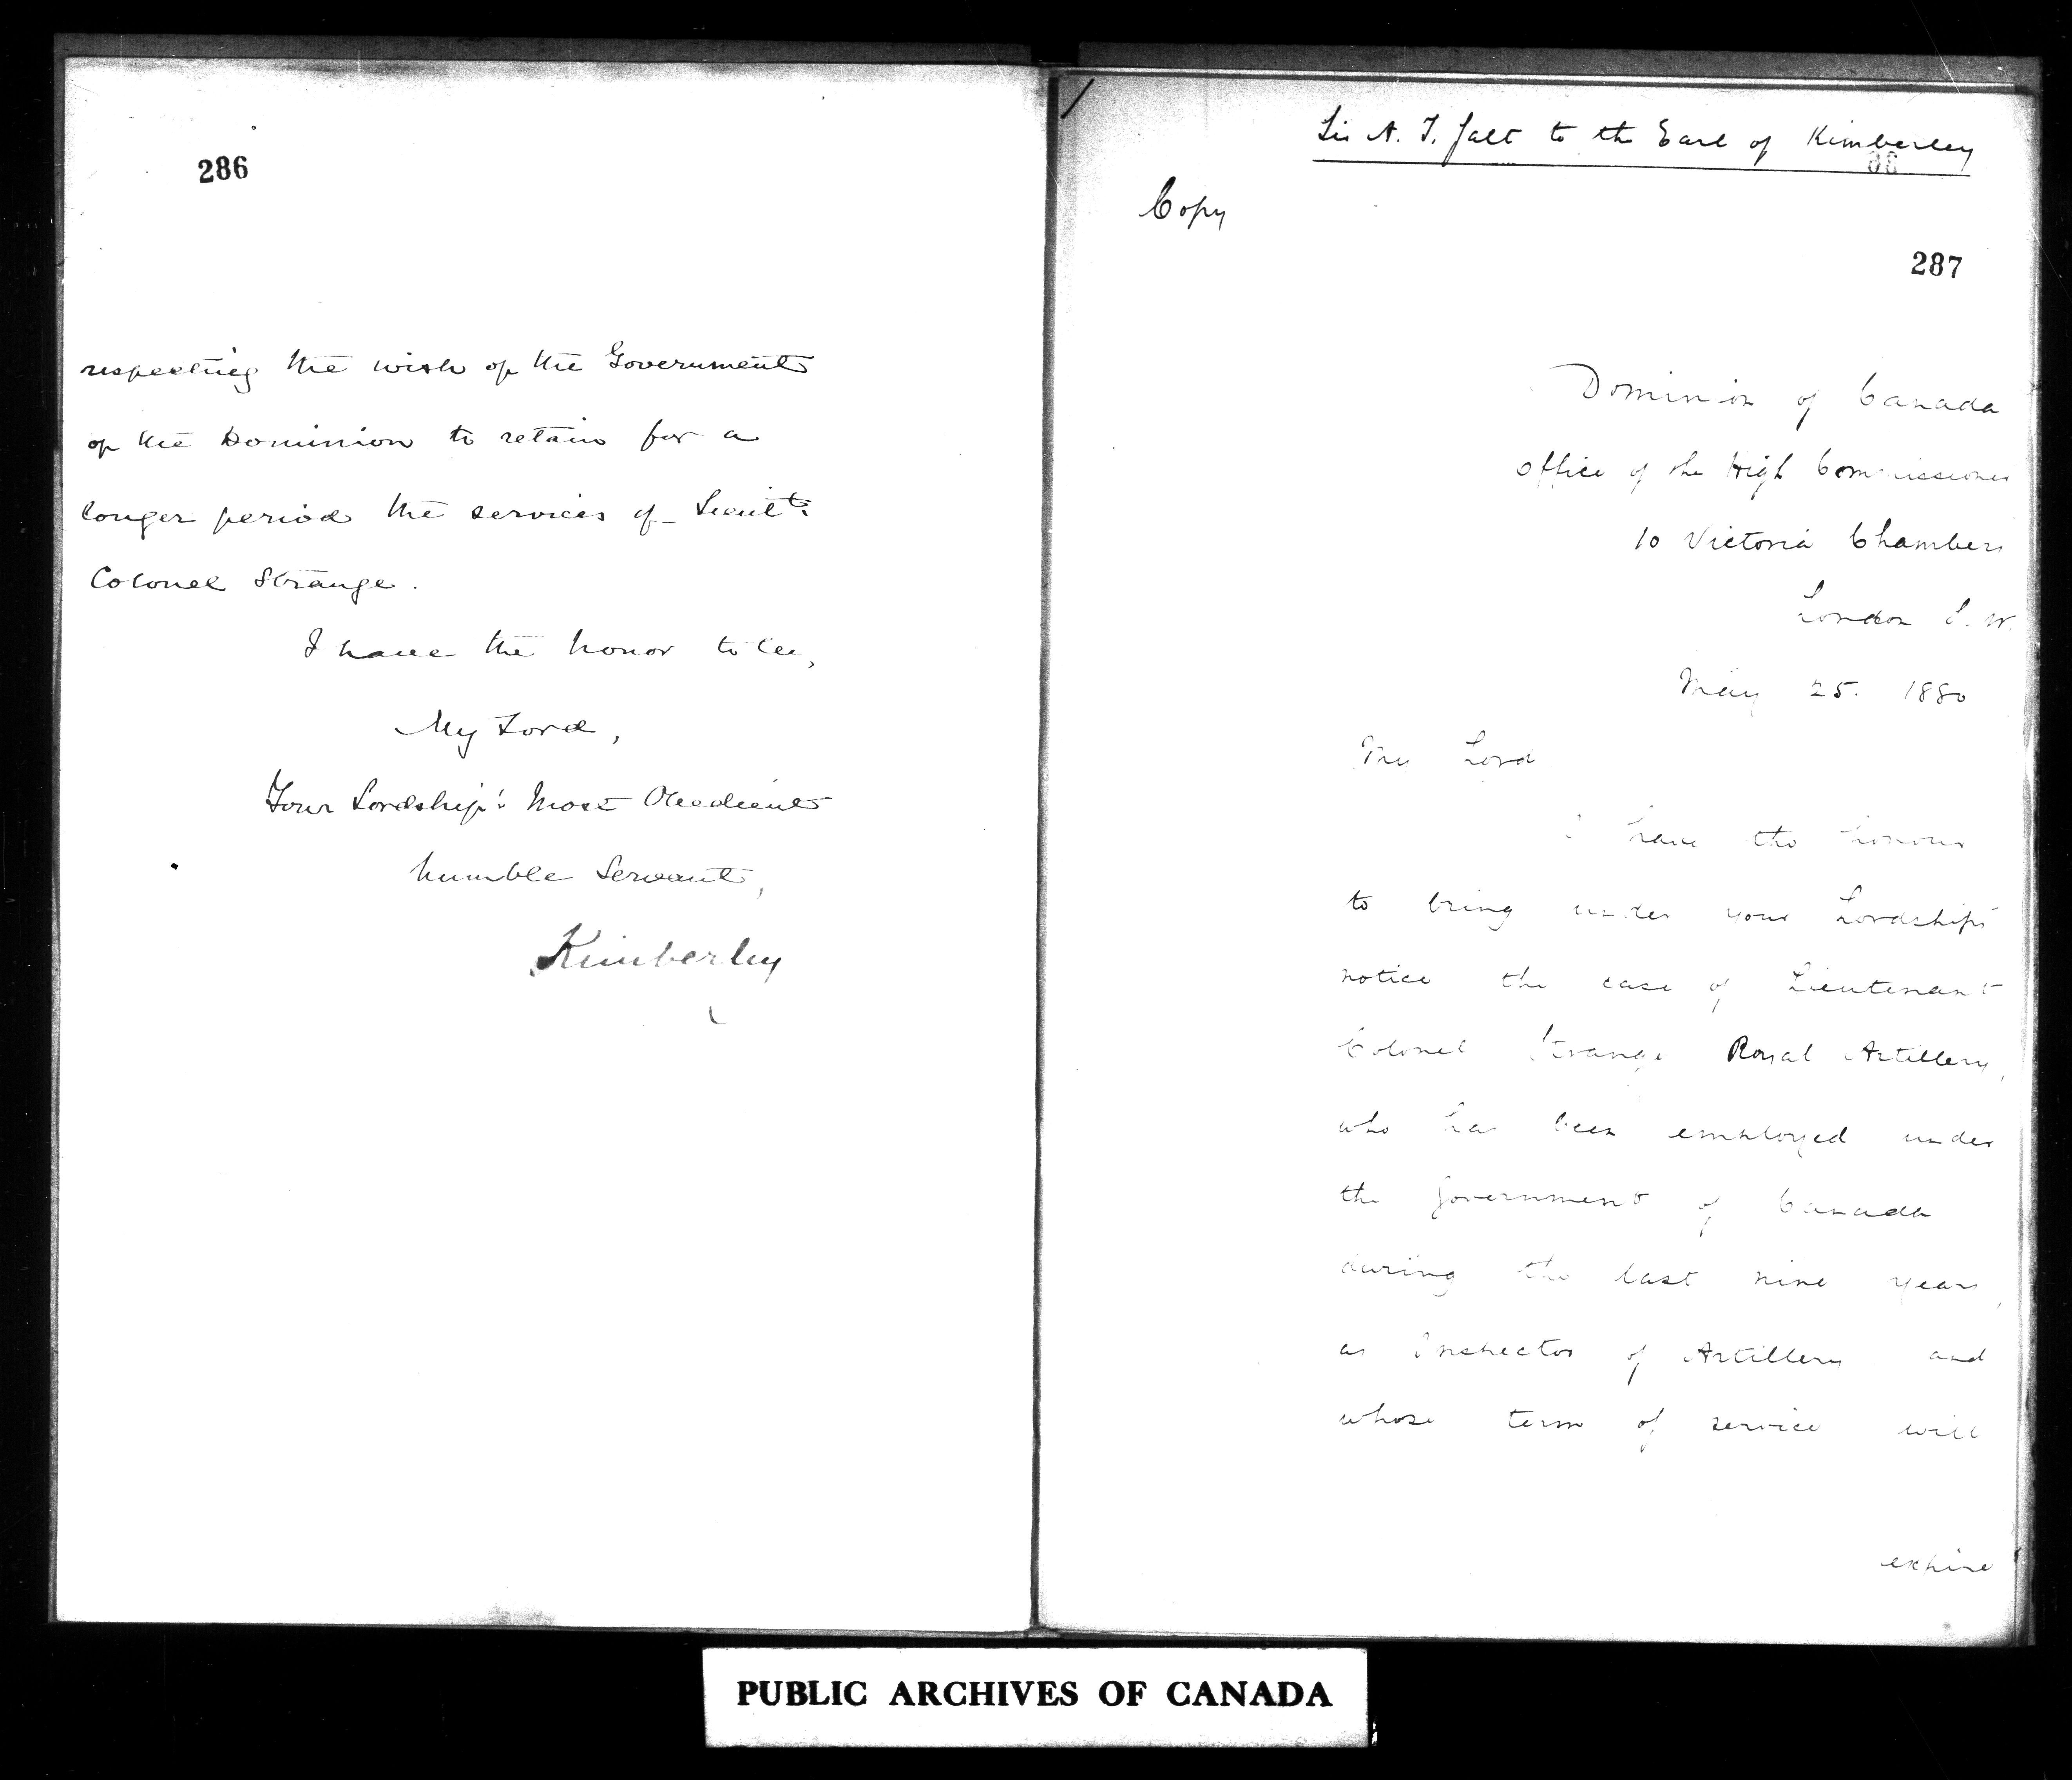 286
respecting the wish of the Government
of the Dominion to retain for a
longer period the services of Lieut:
Colonel Strange.
I have the honor to be,
My Lord,
Your Lordship's Most Obedient
humble Servant,
Kimberley
Sir A. T. Galt to the Earl of Kimberley
Copy
287
Dominion of Canada
Office of the High Commissioner
10 Victoria Chambers
London S. W.
May 25. 1880
My Lord
I have the honour
to bring under your Lordship's
notice the case of Lieutenant
Colonel Strange Royal Artillery,
who has been employed under
the Government of Canada
during the last nine years,
as Inspector of Artillery and
whose term of service will
expire
PUBLIC ARCHIVES OF CANADA